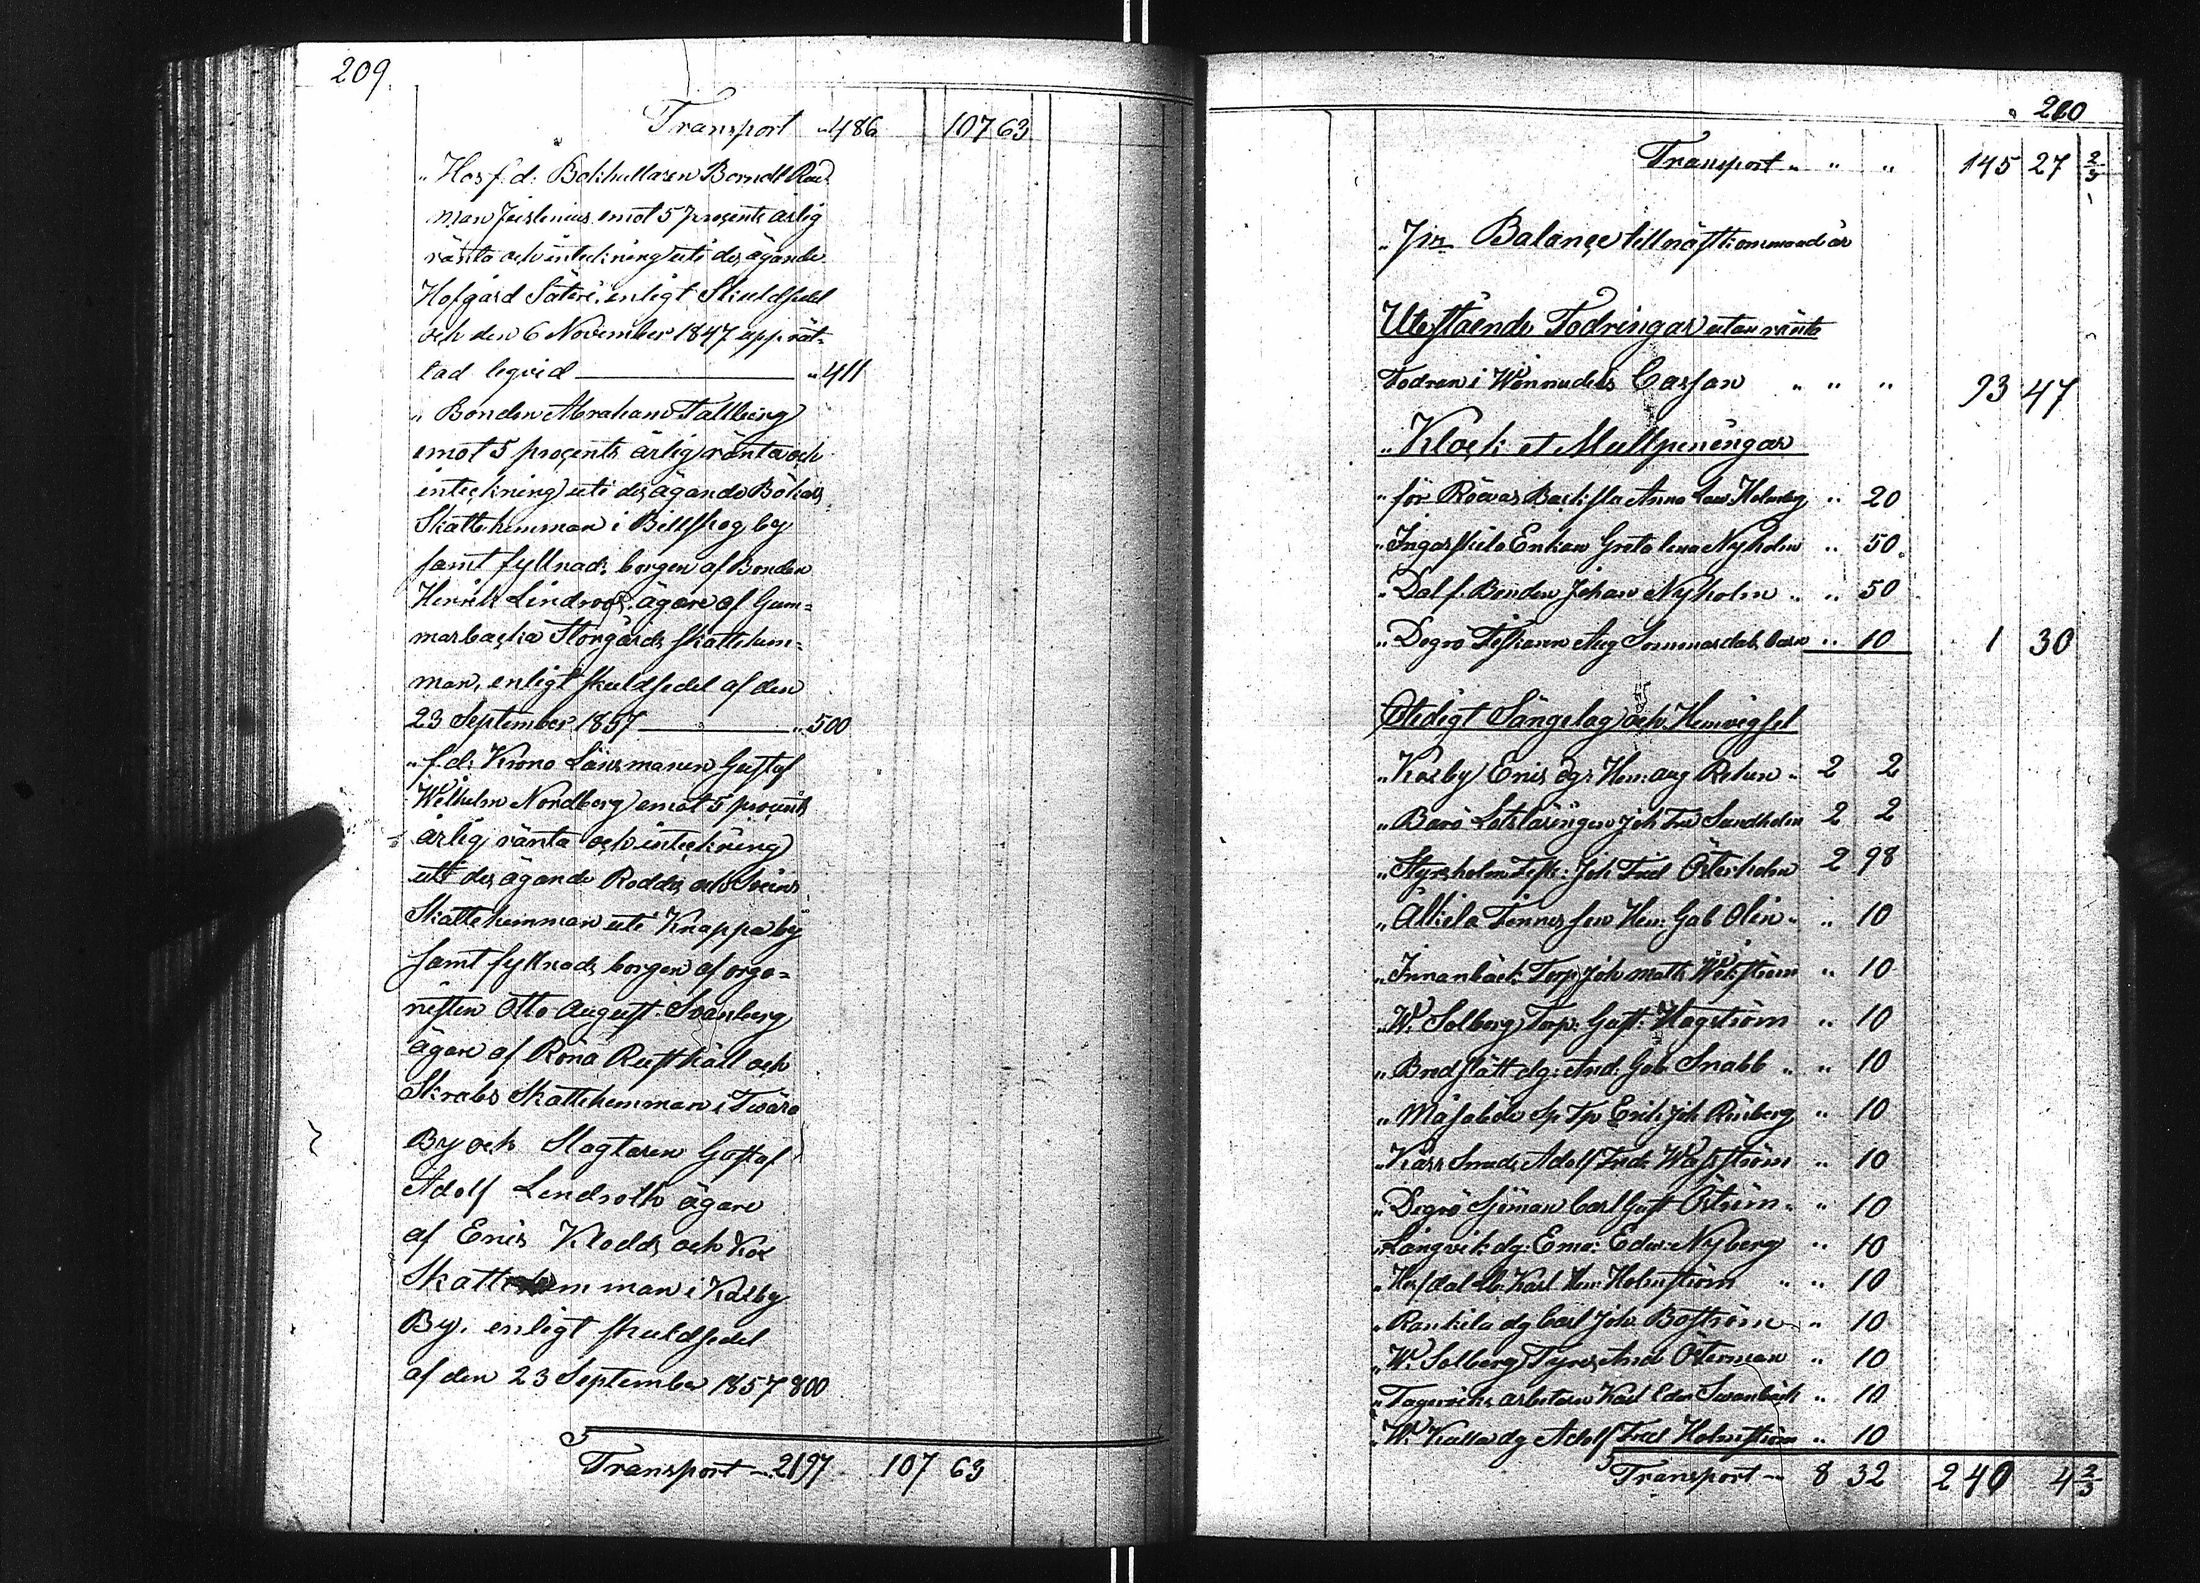 209
Transport " 486 107 63
" Hos f. d. Bokhållaren Berndt
man emot 5 procents årlig
ränta och inteckning uti des ägande
Hofgård Säteri, enligt Skuldsedel
och den 6 November 1847 upprät-
tad liqvid " 411
" Bonden Abraham Tallberg
emot 5 procents årlig ränta och
inteckning uti des ägande Bökars
Skattehemman i Billskog by
samt fyllnads borgen af Bonden
Henrik Lindroos, ägare af Gum=
marbacka Storgårds skattehem=
man, enligt skuldsedel af den
23 September 1857 " 500
" f. d. Krono Länsmanen Gustaf
Wilhelm Nordberg emot 5 procents
årlig ränta och inteckning
uti des ägande Rodds och Sveins
Skattehemman uti Knappa by
samt fyllnads borgen af orga=
nisten Otto August Svanberg
ägare af Röna Rusthåll och
Skrabs Skattehemman i Tvärö
By och Slagtaren Gustaf
Adolf Lindroth ägare
af Eris Klodds och
Skattehemman i Karby
By, enligt skuldsedel
af den 23 September 1857 800
Transport " 2197 107 63
210
Transport " " " 145 27 2/3
" Pr Balançe till näst kommand år
Utestående Fodringar utan ränta
Fodran i Cassan " " " 93 47
" Klock et Mullpeningar
" för Backsta Anna Holmby " 20
" Ingarskila Enkan Greta Lena Nyholm " 50
" Dal f. Bonden Johan Nyholm " " 50
" Degerö Fiskaren Aug Sommardals barn " 10 1 30
Ostedigt Sängelag och Hemvigsel
" Karby Eris dgr Hen: Aug Rehn " 2 2
" Barö Lotslärlingen Joh Fred Sandholm 2 2
" Styrsholm Fisk: Joh Fred Österholm 2 98
" Älkila Hen: Gab Olin " " 10
" Innanbäck Torp: Joh Matts Wikström " 10
" W. Solberg Torp: Gust: Hagström " 10
" Bredslätt dg: And: Gab Snabb " " 10
" Sp Tp Erik Joh Renberg " 10
" Smeds Adolf Fredr " 10
" Degerö Sjöman Carl Gust Öström " " 10
" Långvik dg: Ema: Edw: Nyberg " 10
" Karl Hen: Holmström " " 10
" Rankila dg Carl Joh Boström " " 10
" W. Solberg And Österman " 10
" Fagervik arbetaren Karl Edw Svanbäck " 10
" W. Kålla dg Adolf Fred Holmström " 10
Transport " 8 32 240 4 2/3